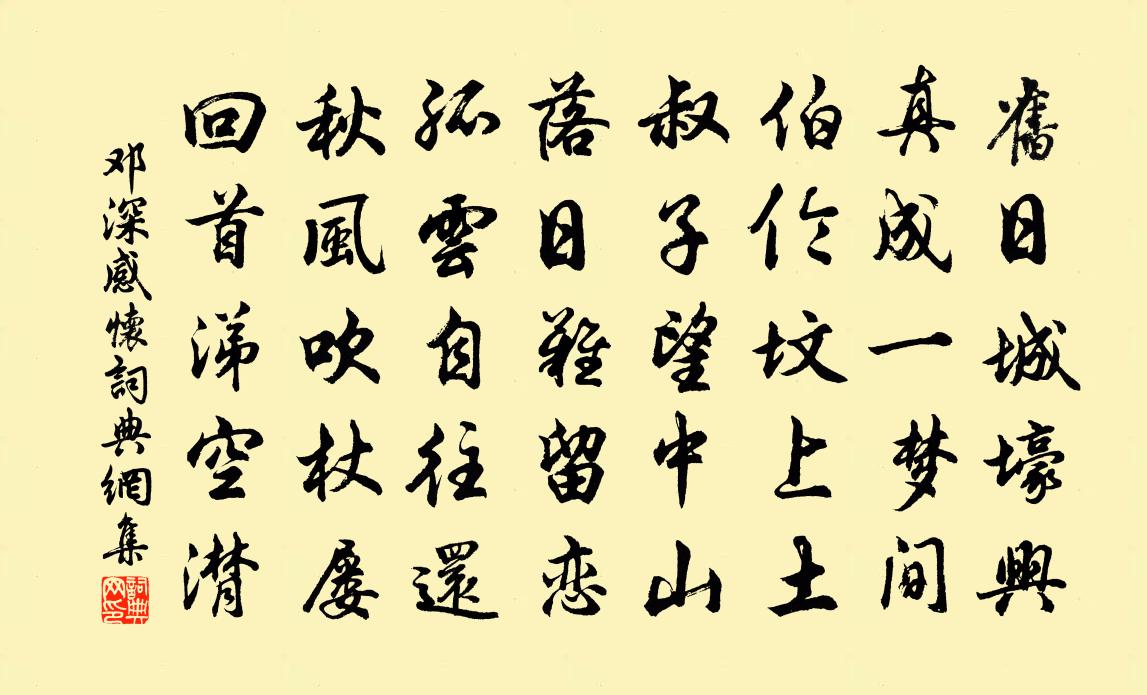 舊日城壕興
真成一梦间
伯伦坟上土
叔子望中山
落日難留恋
孤雲自往還
秋風吹杖屡
回首涕空潸
邓深感懷詞典網集
詞典网印